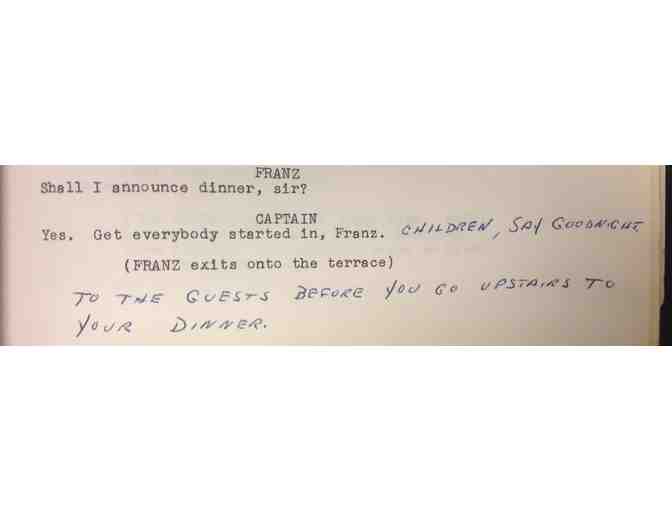 FRANZ
Shall I announce dinner, sir?
CAPTAIN
Yes. Get everybody started in, Franz. CHILDREN, SAY GOODNIGHT
(FRANZ exits onto the terrace)
TO THE GUESTS BEFORE YOU GO UPSTAIRS TO
YOUR DINNER.